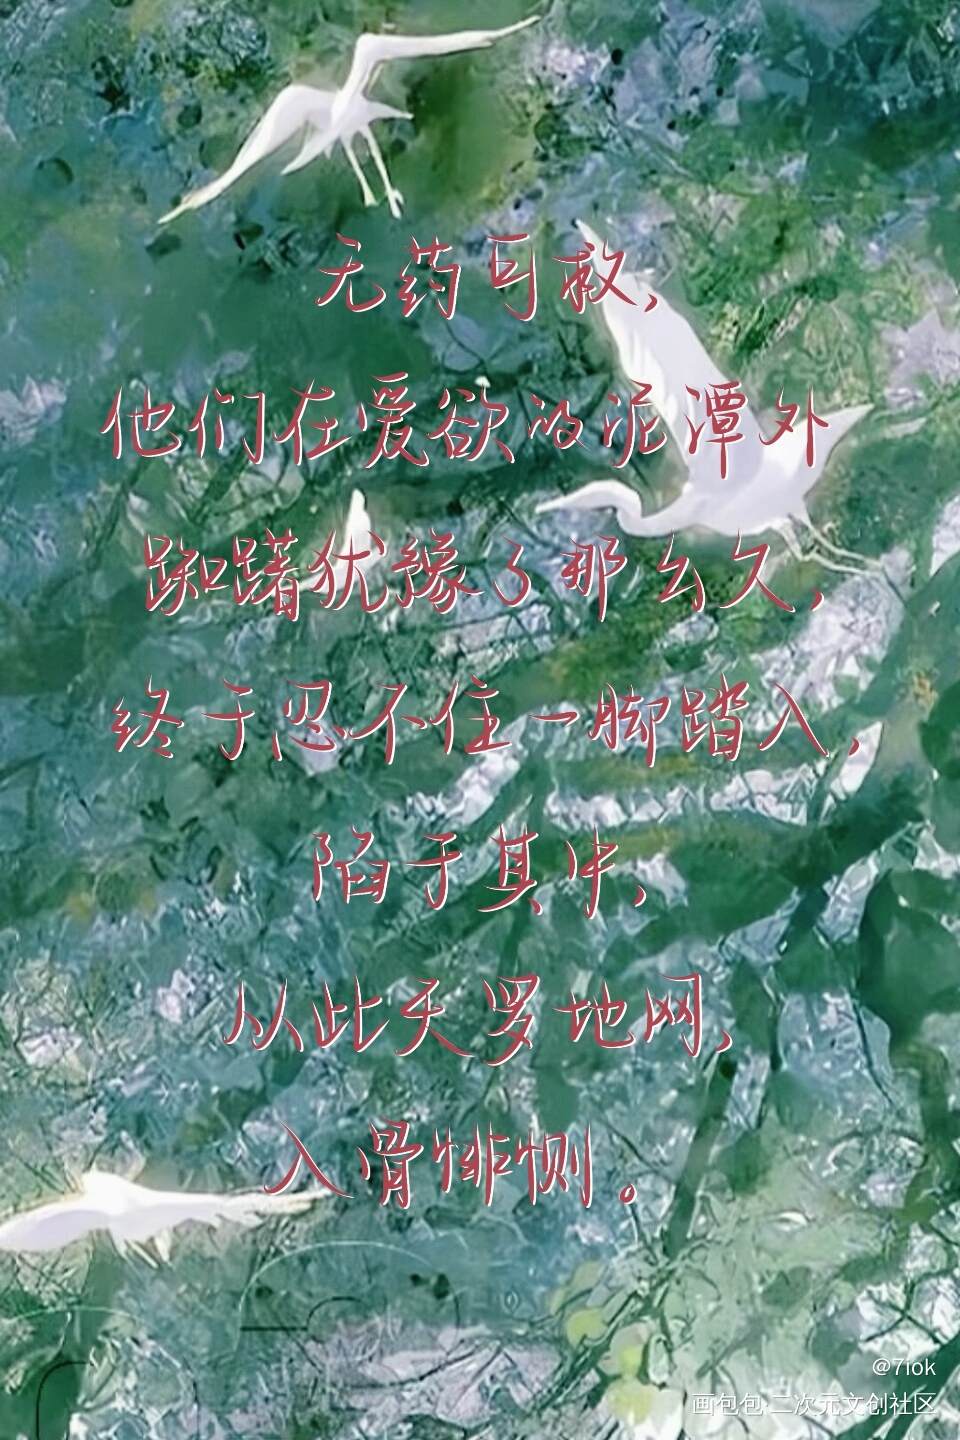 无药可救，
他们在爱欲的泥潭外
踟躇犹豫了那么久，
终于忍不住一脚踏入，
陷于其中，
从此天罗地网，
入骨悱恻。
@7iok
画包包·二次元文创社区